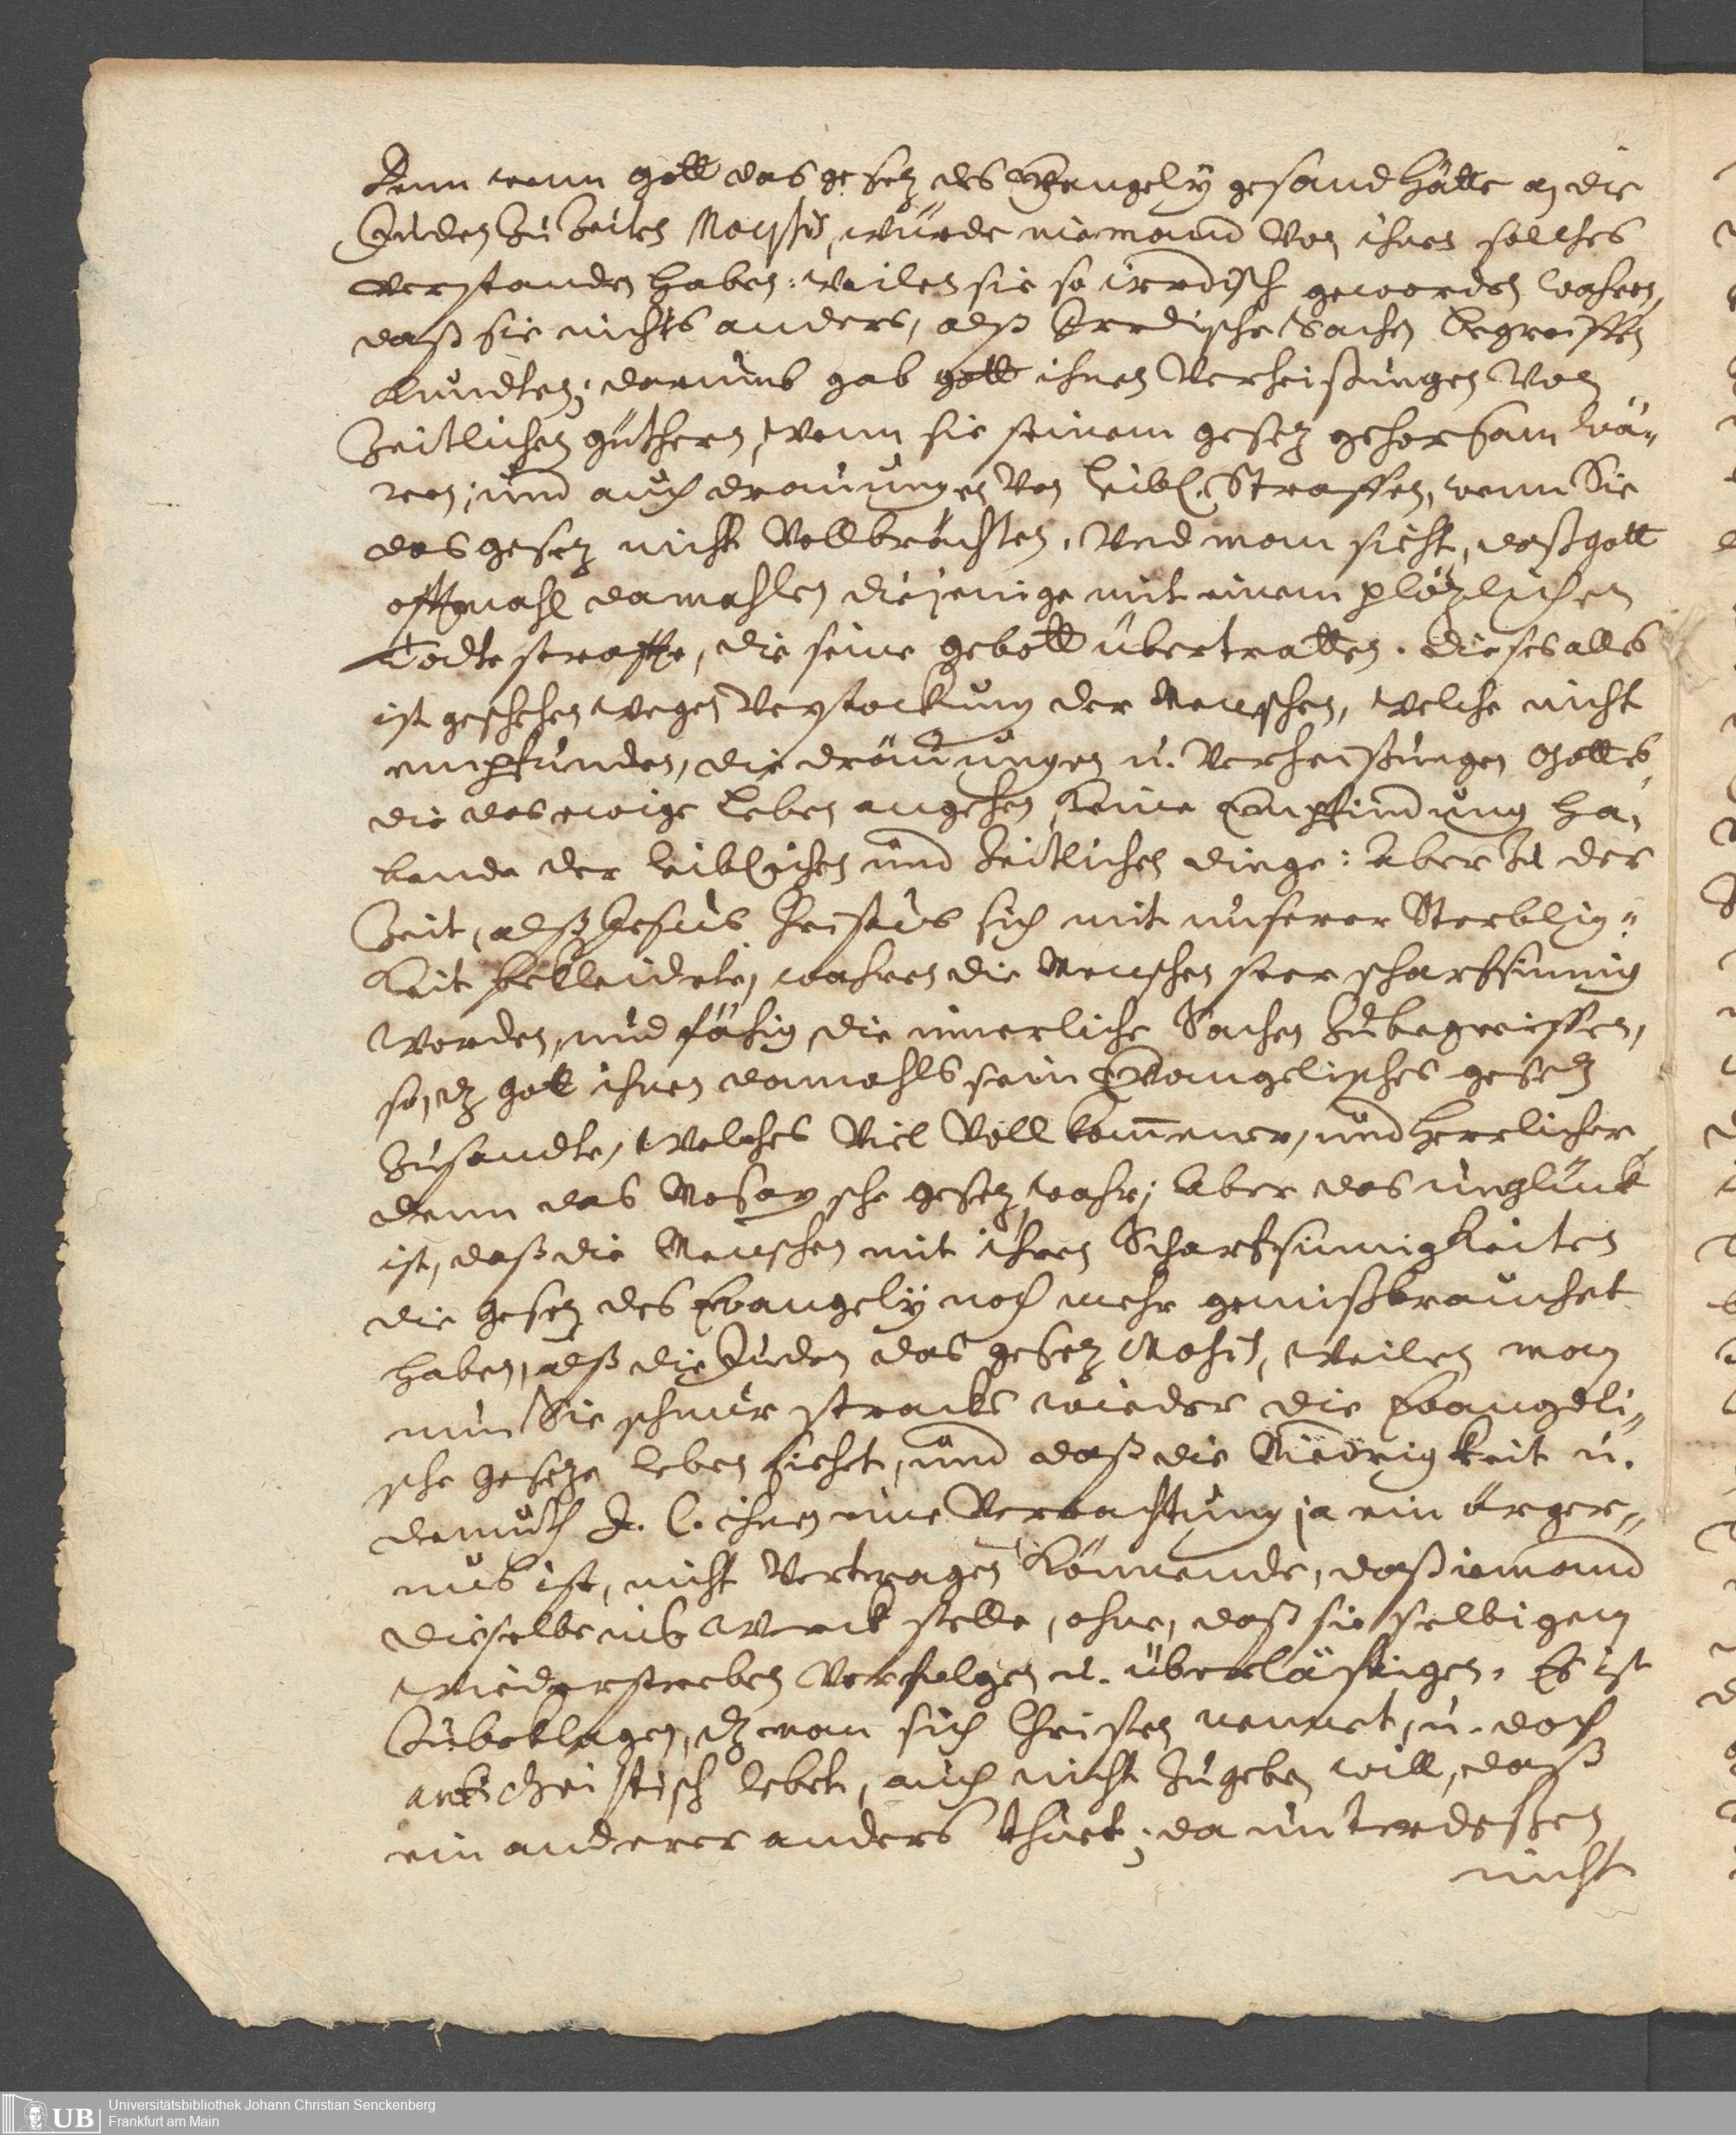 Denn wenn Gott das gesetz des Evangelÿ gesand hätte an die
Juden zu Zeiten Moÿsis, würde niemand von ihnen solches
verstanden haben: weilen sie so irrdisch geworden wahren,
daß sie nichts anders, alß Irrdische Sachen begreiffen
kundten; darumb gab Gott ihnen Verheißungen von
zeitlichen güthern, wenn sie seinem gesetz gehorsam wä-
ren; und auch drauungen von leibl. Straffen, wenn Sie
das gesetz nicht vollbrächten. Und man sieht, daß Gott
offtmahl damahlen diejenige mit einem plötzlichen
Todte straffte, die seine gebott übertratten. dieses alles
ist geschehen wegen Verstockung der Menschen, welche nicht
empfunden, die dräuungen u. Verheißungen Gottes,
die das ewige Leben angehen, keine Empfindung ha-
bende der leiblichen und zeitlichen dinge: Aber zu der
Zeit, alß Jesus Christus sich mit unserer Sterblig-
keit bekleidete, wahren die Menschen seer scharfsinnig
worden, und fähig die innerliche Sachen zubegreiffen,
so, dz Gott ihnen damahls sein Evangelisches gesetz
zusandte, welches viel vollkom̄ener, und herrlicher
denn das Mosaysche gesetz wahr; Aber das unglück
ist, daß die Menschen mit ihren Scharfsinnigkeiten
die gesetz des Evangelÿ noch mehr gemißbrauchet
haben, alß die Juden das gesetz Mosis, weilen man
nun Sie schnur stracks wieder die Evangeli-
sche gesetze leben siehet, und daß die Niedrigkeit u.
demuth J. C. ihnen eine Verachtung ja ein ärger-
nus ist, nicht vertragen könnende, daß iemand
dieselbe ins Werck stelle, ohne, daß sie selbigem
wiederstreben verfolgen u. überlästigen. Es ist
zubeklagen, dz man sich Christen nennet, u. doch
antichristisch lebet, auch nicht zugeben will, daß
ein anderer anders thuet; da unterdeßen
nicht
Universitätsbibliothek Johann Christian Senckenberg
Frankfurt am Main
UB